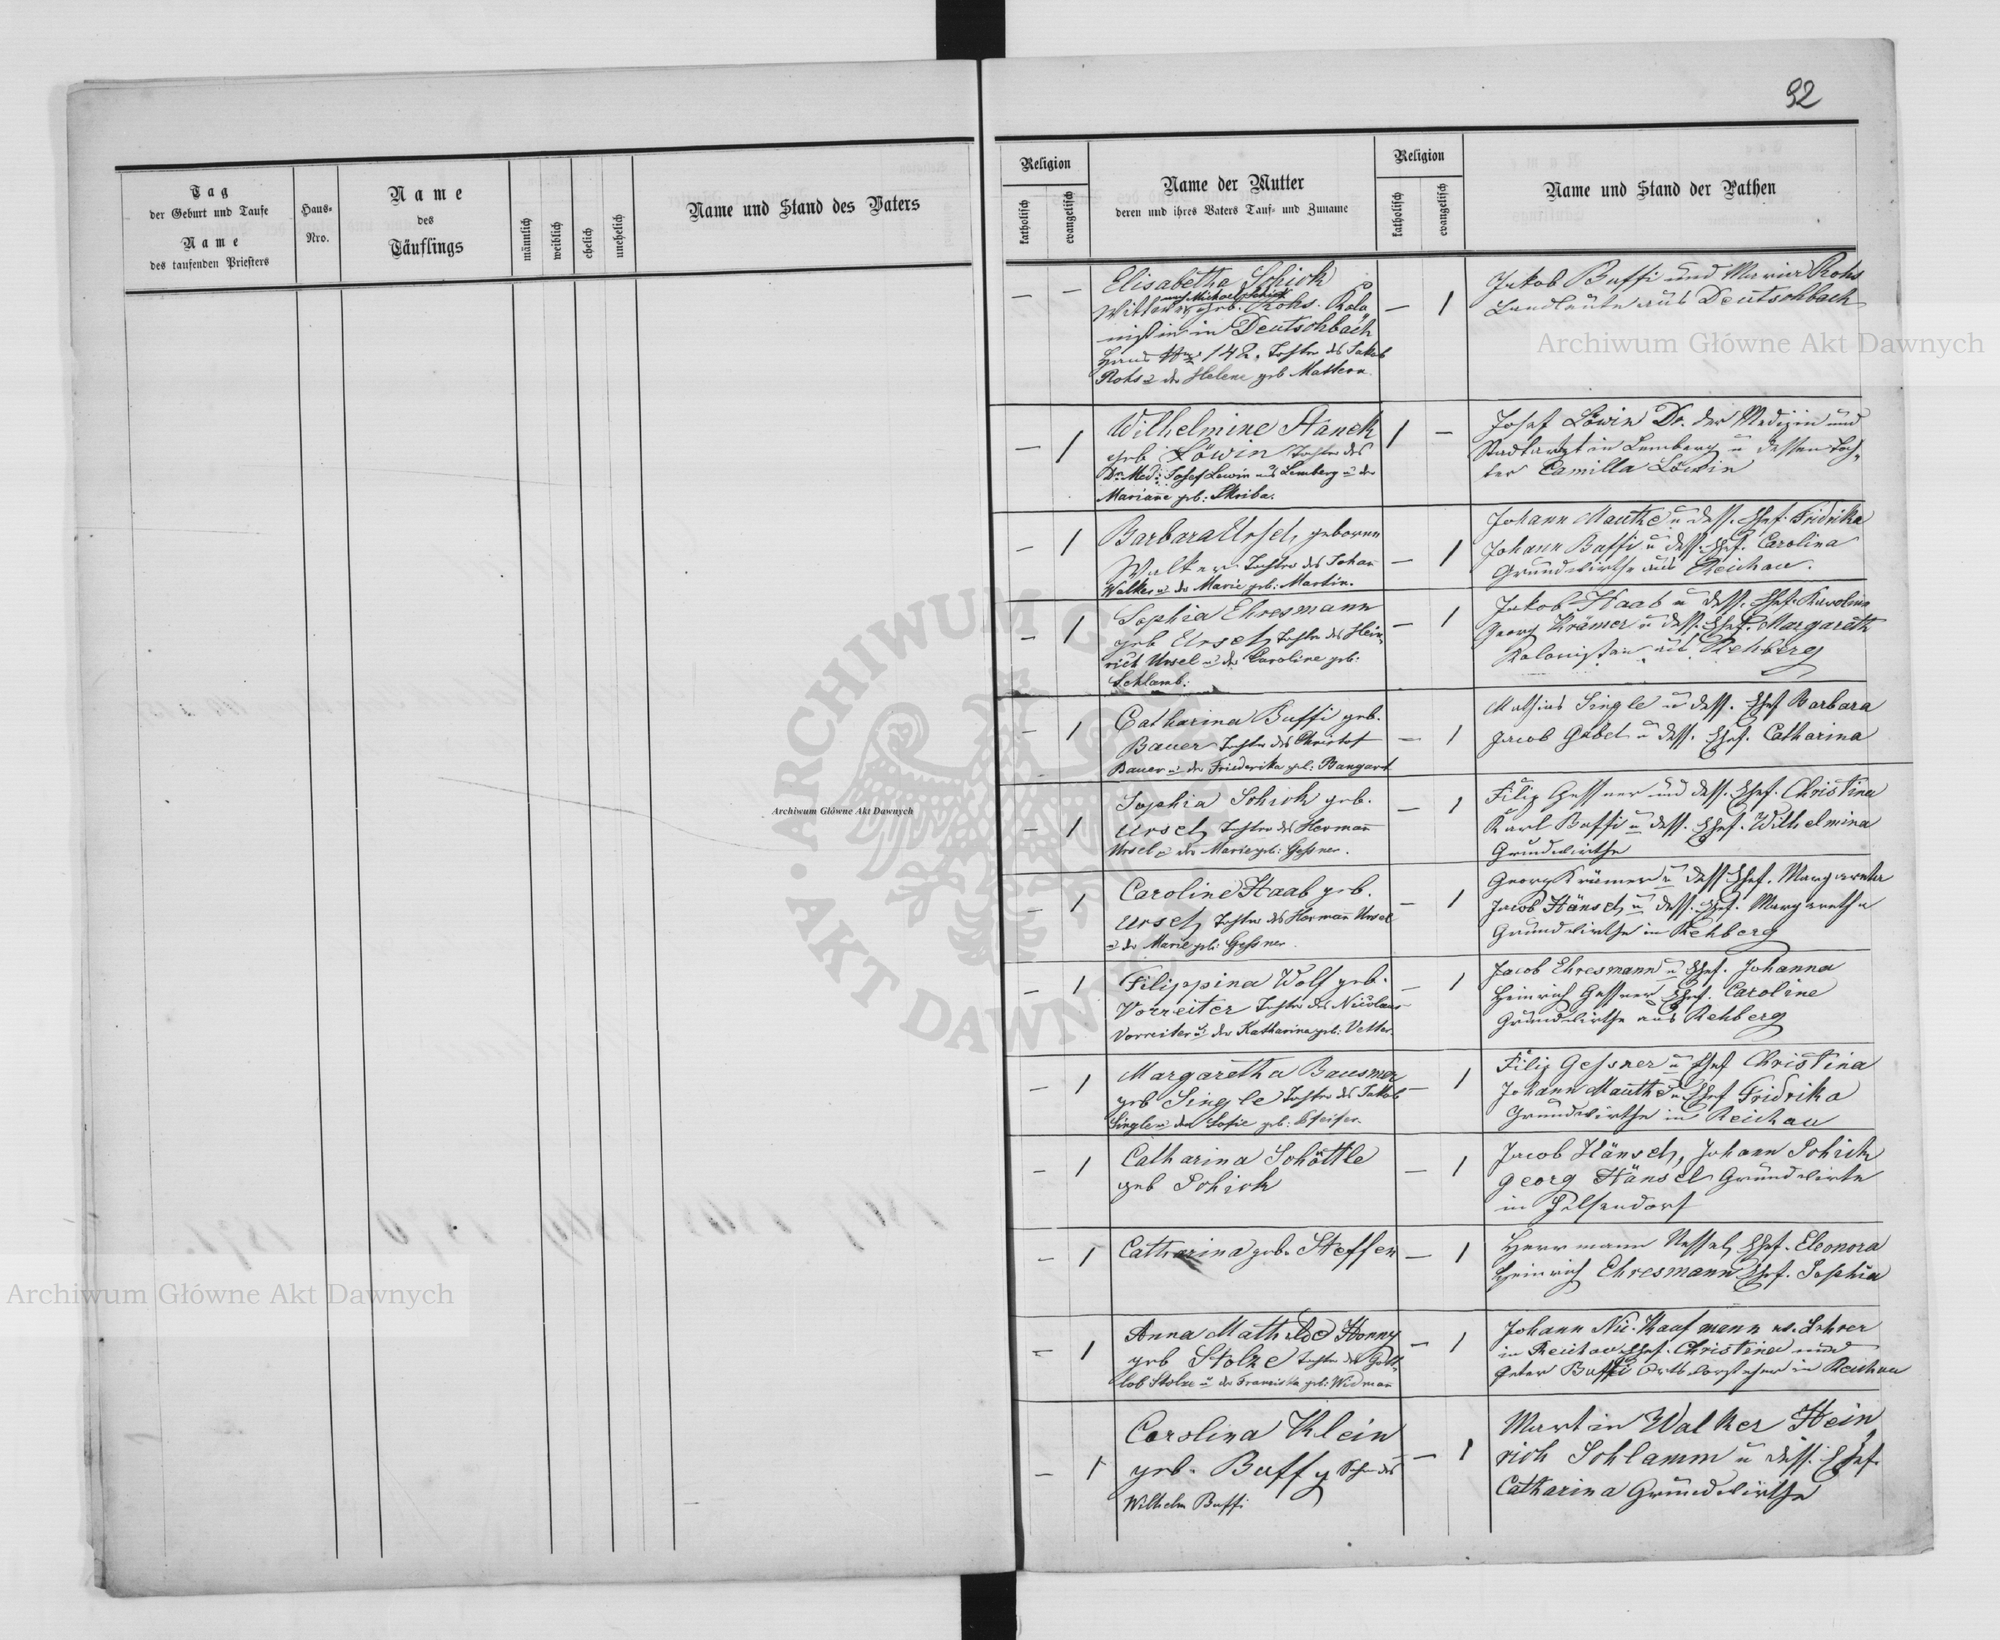 92
Tag
der Geburt und Taufe
Name
des taufenden Priesters
Haus-
Nro.
Name
des
Täuflings
männlich
weiblich
ehelich
unehelich
Name und Stand des Vaters
Religion
katholisch
evangelisch
Name der Mutter
deren und ihres Vaters Tauf- und Zuname
Religion
katholisch
evangelisch
Name und Stand der Pathen
— —
Elisabetha Schick
nach Michael Schick
Witwe geb. Rohs. Kolo
nistin in Deutschbach
Haus Nro 142, Tochter des Jakob
Rohs u der Helene geb Mattern
— 1
Jakob Buffi und Maria Rohs
Landleute aus Deutschbach
— 1
Wilhelmine Stanek
geb Löwin Tochter des
Dr Med: Josef Löwin aus Lemberg u der
Mariane geb: Skriba.
1 —
Josef Löwin Dr. der Medizin und
Stadtarzt in Lemberg u dessen Toch-
ter Camilla Löwin
— 1
Barbara Ursel, geborene
Walker Tochter des Johan
Walker u der Marie geb: Martin.
— 1
Johann Mauthe u dess. Ehef. Fridrika
Johann Buffi u dess. Ehef. Carolina
Grundwirthe aus Reichau.
— 1
Sophia Ehresmann
geb Ursel, Tochter des Hein-
rich Ursel u der Caroline geb:
Schlamb.
— 1
Jakob Haab u dess. Ehef. Karolina
Georg Krämer u dess. Ehef. Margareth
Kolonisten aus Rehberg
— 1
Catharina Buffi geb.
Bauer Tochter des Christof
Bauer u der Friederika geb: Bangart
— 1
Mathias Single u dess. Ehef Barbara
Jacob Gobel u dess. Ehef. Catharina
— 1
Sophia Schick geb.
Ursel, Tochter des Hermann
Ursel u der Marie geb: Gessner.
— 1
Filip Gessner und dess. Ehef. Christina
Karl Buffi u dess. Ehef. Wilhelmina
Grundwirthe
— 1
Caroline Haab geb.
Ursel, Tochter des Hermann Ursel
u der Marie geb: Gessner.
— 1
Georg Krämer u dess Ehef. Margaretha
Jacob Hänsel, u dess. Ehef. Margaretha
Grundwirthe in Rehberg
— 1
Filippina Wolf geb.
Vorreiter Tochter des Nicolaus
Vorreiter u der Katharina geb: Vetter.
— 1
Jacob Ehresmann u Ehef. Johanna
Heinrich Gessner, Ehef. Caroline
Grundwirthe aus Rehberg
— 1
Margaretha Bausmer
geb Single Tochter des Jakob
Single u der Sofie geb: Pfeifer.
— 1
Filip Gessner u Ehef Christina
Johann Mauthe u Ehef Fridrika
Grundwirthe in Reichau
— 1
Catharina Schöttle
geb Schick
— 1
Jacob Hänsel, Johann Schick
Georg Hänsel Grundwirte
in Felsendorf
— 1
Catharina geb. Steffen
— 1
Herrmann Ursel, Ehef. Eleonora
Heinrich Ehresmann Ehef. Sophia
— 1
Anna Mathilde Honny
geb Stolze Tochter des Gott-
lob Stolze u der Franziska geb: Widmann
— 1
Johann Nic. Kaufmann ev. Lehrer
in Reichau Ehef. Christina und
Peter Buffi Ortsvorsteher in Reichau
— 1
Carolina Klein
geb. Buffy des
Wilhelm Buffi
— 1
Martin Walker Hein
rich Schlamm u dess. Ehef.
Catharina Grundwirthe
Archiwum Główne Akt Dawnych
Archiwum Główne Akt Dawnych
Archiwum Główne Akt Dawnych